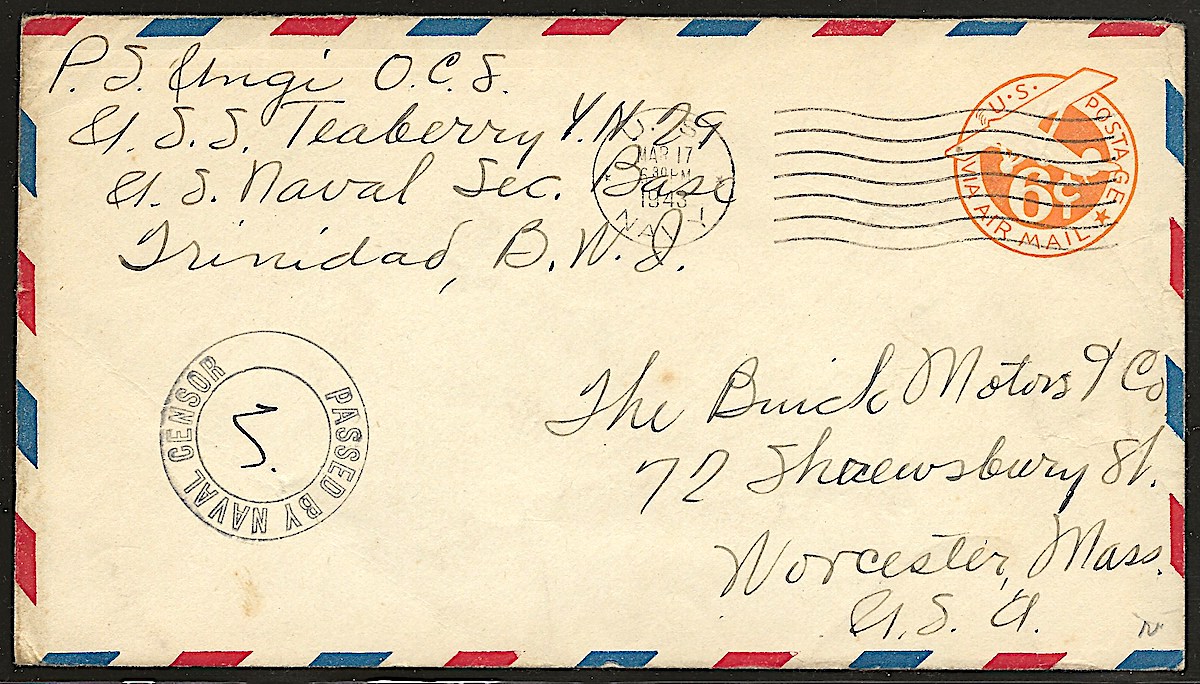 P. S. Ungi O.C.S.
U.S.S. Teaberry Y.N. 29
U.S. Naval Sec. Base
Trinidad, B.W.I.
U.S.
MAR 17
6 30 PM
1943
NAVY
U.S. POSTAGE
6¢
VIA AIR MAIL
PASSED BY NAVAL CENSOR
The Buick Motors & Co
72 Shrewsbury St.
Worcester, Mass.
U.S.A.